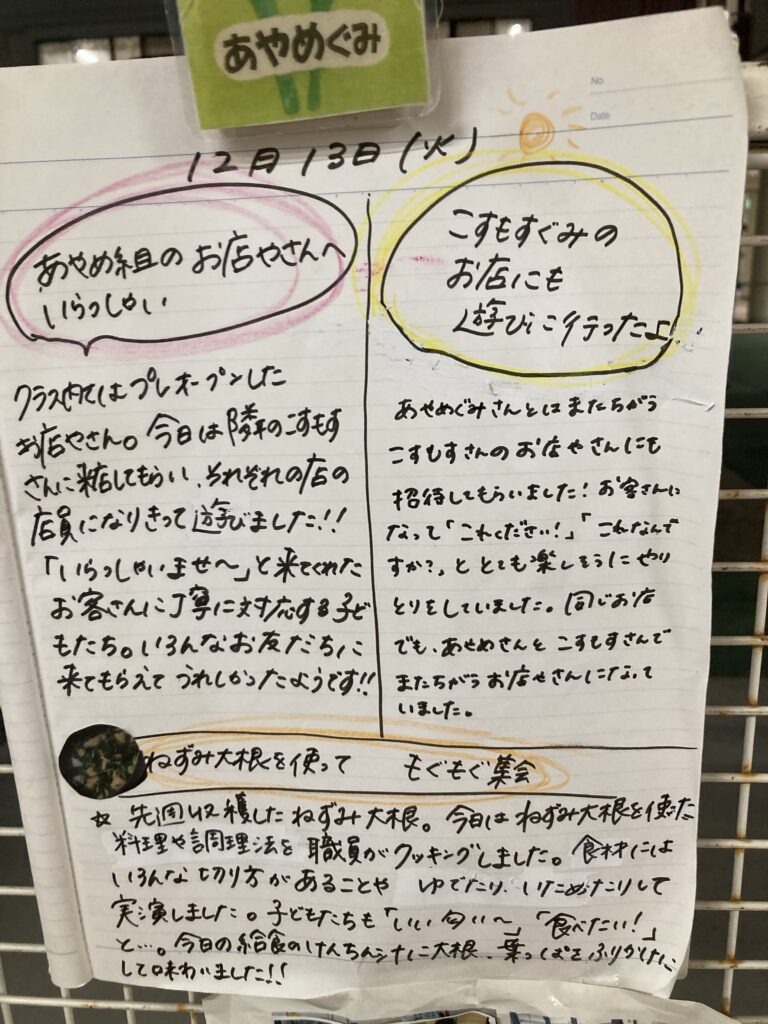 あやめぐみ
No.
Date
12月13日(火)
あやめ組のお店やさんへ
いらっしゃい
クラス内ではプレオープンした
お店やさん。今日は隣のこすもす
さんに来店してもらい、それぞれの店の
店員になりきって遊びました!!
「いらっしゃいませ〜」と来てくれた
お客さんに丁寧に対応する子ど
もたち。いろんなお友だちに
来てもらえてうれしかったようです!!
こすもすぐみの
お店にも
遊びに行ったよ!
あやめぐみさんとはまたちがう
こすもすさんのお店やさんにも
招待してもらいました!お客さんに
なって「これください!」「これなんで
すか?」ととても楽しそうにやり
とりをしていました。同じお店
でも、あやめさんとこすもすさんで
またちがうお店やさんになって
いました。
ねずみ大根を使って もぐもぐ集会
☆ 先週収穫したねずみ大根。今日はねずみ大根を使った
料理や調理法を職員がクッキングしました。食材には
いろんな切り方があることや ゆでたり、いためたりして
実演しました。子どもたちも「いい匂い〜」「食べたい!」
と…。今日の給食のけんちん汁に大根、葉っぱをふりかけに
して味わいました!!